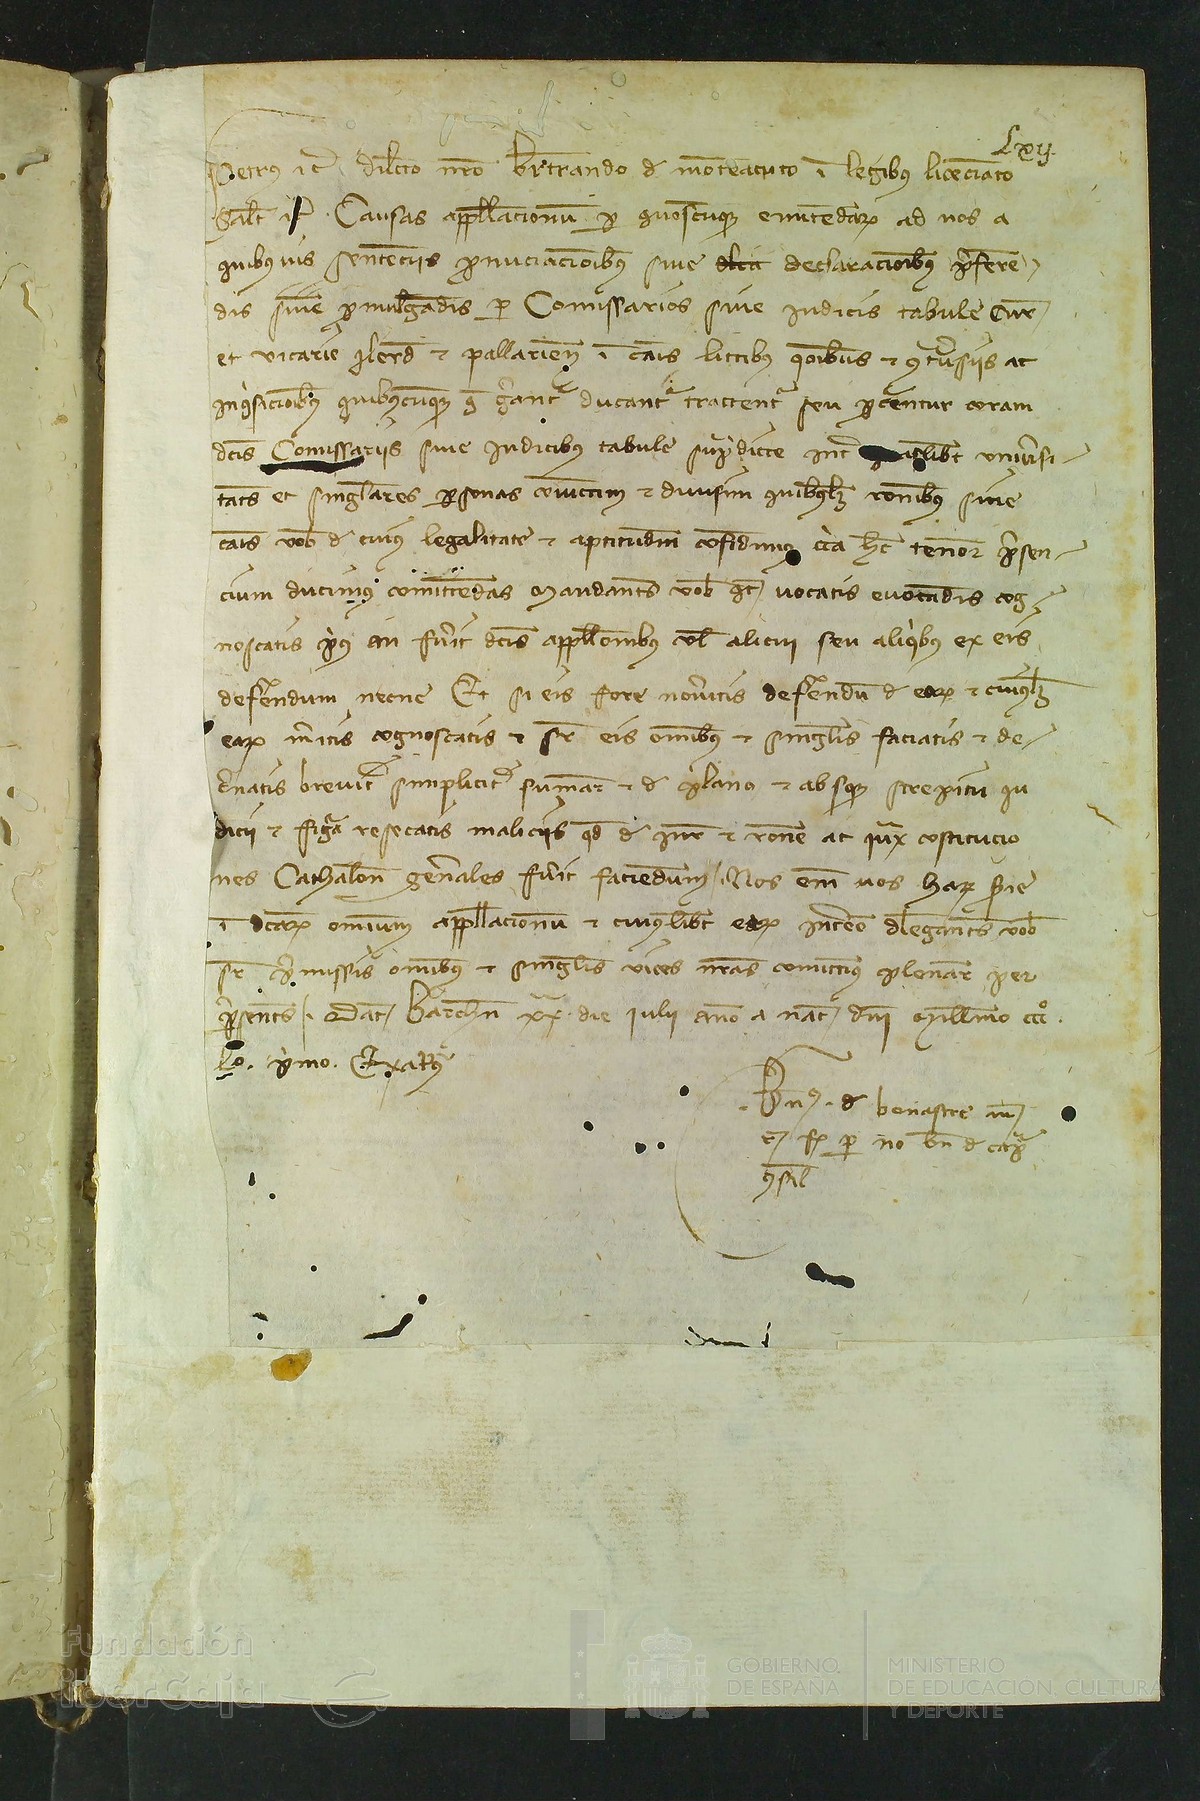 Lxij.
Petrus etc dilecto nro Bertrando de monteacuto i legibus licenciato
Salt etc. Causas appellacionu p quoscumque emittendarum ad nos a
quibusvis sentenciis pnunciacionibus sive declaracionibus pferen
dis sive pmulgandis per Comissarios sive iudices tabule Cur
et vicarie Ilerd et pallarien i cais litibus qonibus et controversiis ac
inquisicionibus quibuscumque que gerantr ducantr tractentr seu
dcis Comissariis sive Iudicibus tabule supradicte inter universi
tates et singlares psonas coniunctim et divisim quibuslibet ronibus sive
cais vob de cuius legalitate et aptitudine confidimus cua hc tenore psen
cium ducimus comittendas mandantes vob qt vocatis evocandis cog
noscatis prius an fuerit dcis appellonibus vel alicui seu aliquibus ex eis
deferendum necne Et si eis fore noveritis deferendu de earum et cuiuslibet
earum meritis cognoscatis et sr eis omibus et singlis faciatis et de
cernatis breviter simpliciter sumar et de plano et absque strepitu iu
dicii et figura resecatis maliciis qd de iure et rone ac iuxta costitucio
nes Cathalon generales fuerit faciendum Nos em vos harum serie
i dcarum omnium appellacionu et cuiuslibet earum delegantes vob
sr pmissis omibus et singlis vices nras comittimus plenar per
psentes. Dat Barchn xx die Iulii anno a nat dni Millmo ccc
Lo. primo. Exatus
Bn de bonastre
de
consil
Fundación
iberCaja
GOBIERNO
DE ESPAÑA
MINISTERIO
DE EDUCACIÓN, CULTURA
Y DEPORTE